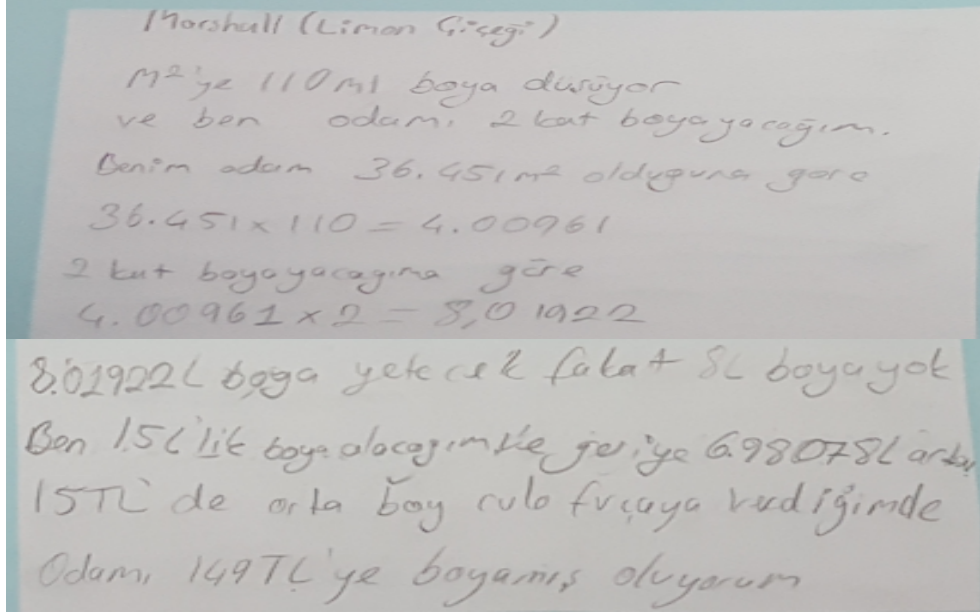 Marshall (Limon Çiçeği)
M²'ye 110ml boya düşüyor
ve ben odamı 2 kat boyayacağım.
Benim odam 36.451m² olduğuna göre
36.451x110=4.00961
2 kat boyayacağıma göre
4.00961x2=8,01922
8.01922L boya yetecek fakat 8L boya yok
Ben 15L'lik boya alacağım ve geriye 6.98078L artar
15TL de orta boy rulo fırçaya verdiğimde
Odamı 149TL'ye boyamış oluyorum